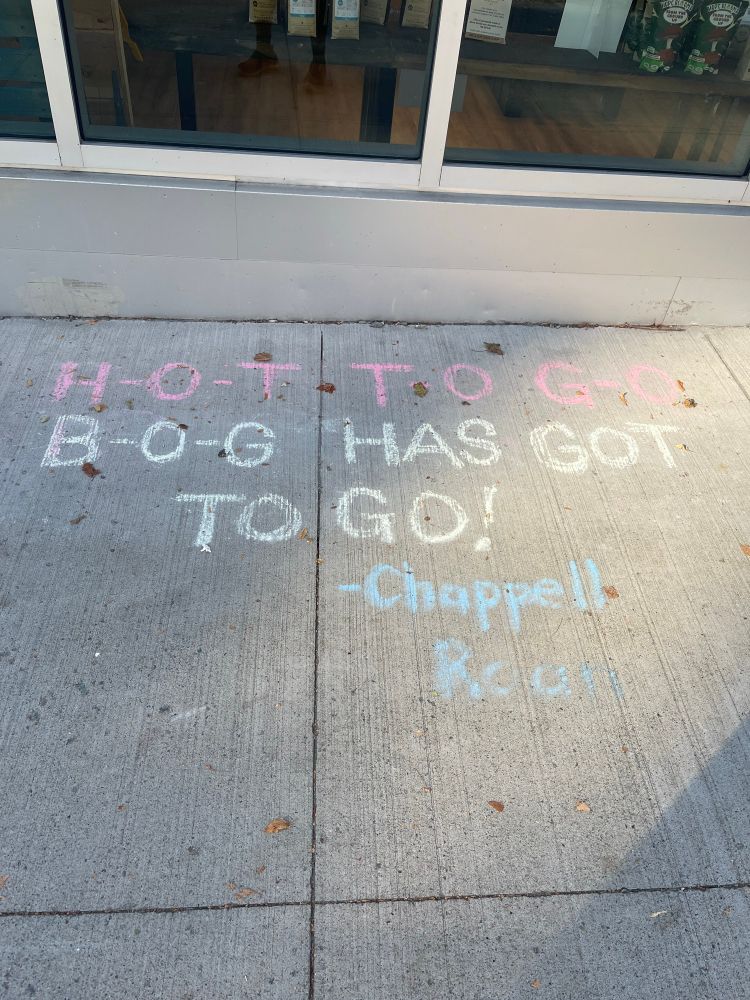 H-O-T TO G-O
B-O-G HAS GOT
TO GO!
-Chappell
Roan